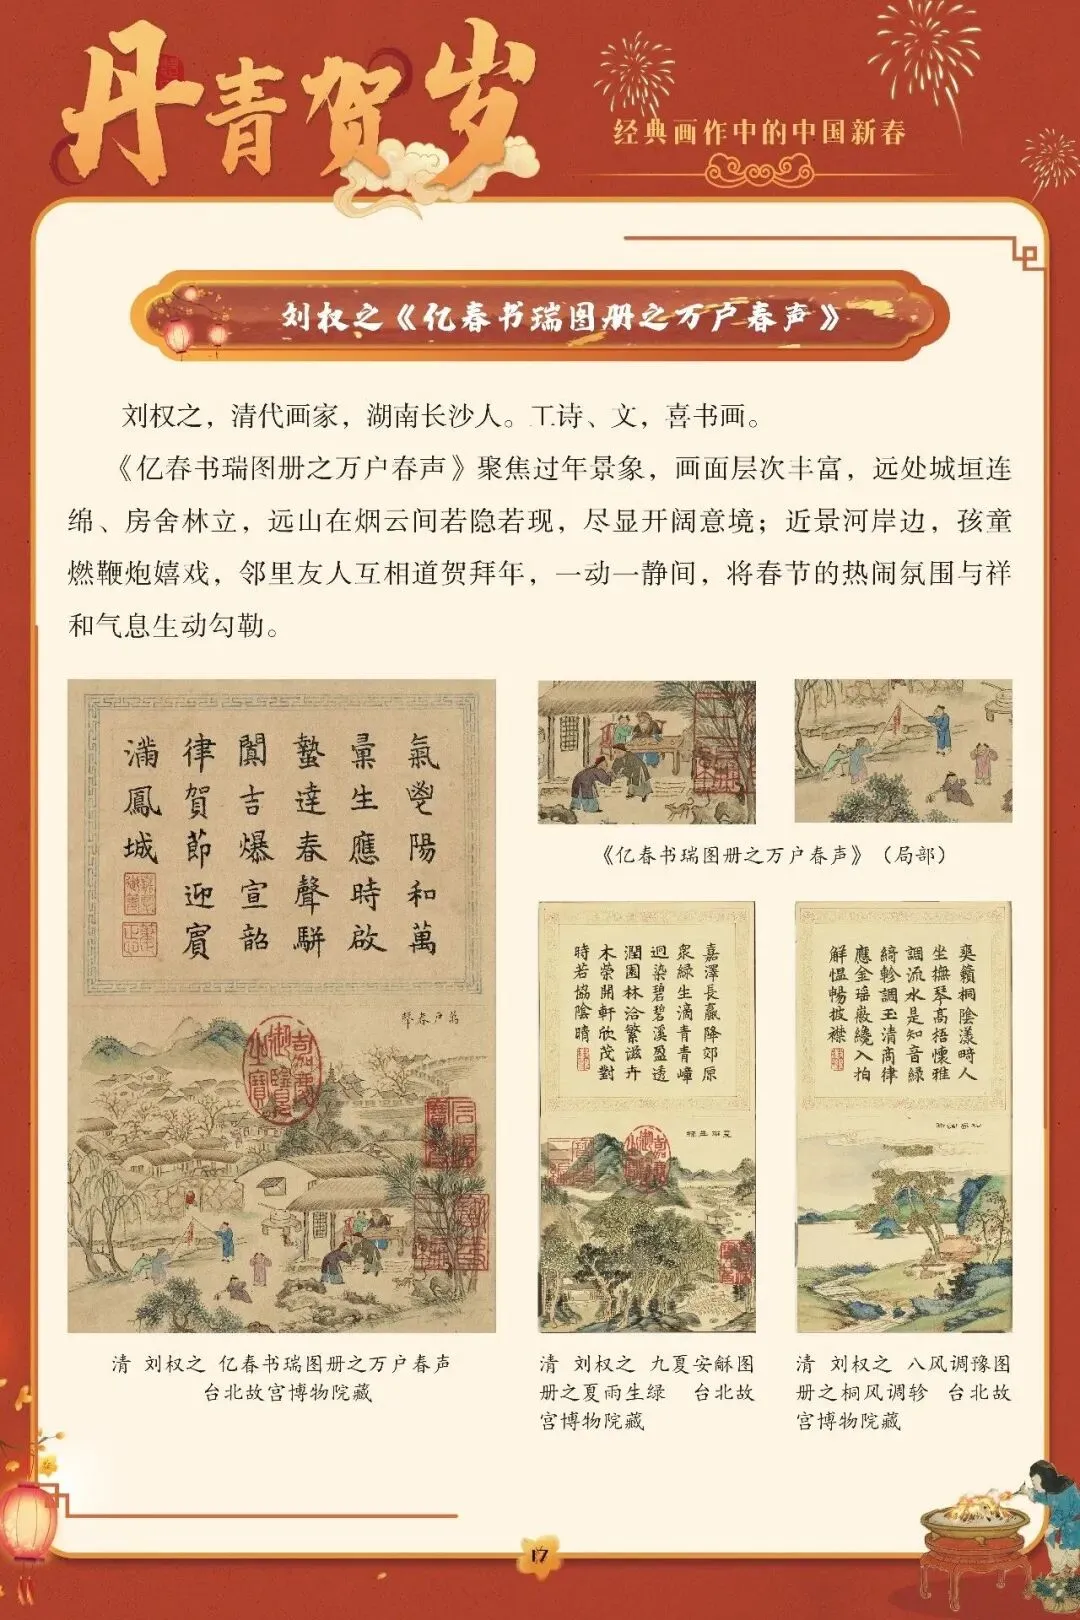 丹青贺岁
经典画作中的中国新春
刘权之《亿春书瑞图册之万户春声》
刘权之，清代画家，湖南长沙人。工诗、文，喜书画。
《亿春书瑞图册之万户春声》聚焦过年景象，画面层次丰富，远处城垣连
绵、房舍林立，远山在烟云间若隐若现，尽显开阔意境；近景河岸边，孩童
燃鞭炮嬉戏，邻里友人互相道贺拜年，一动一静间，将春节的热闹氛围与祥
和气息生动勾勒。
氣鬯陽和萬
彙生應時啟
蟄達春聲駢
闐吉爆宣韶
律賀節迎賓
滿鳳城
萬戶春聲
清 刘权之 亿春书瑞图册之万户春声
台北故宫博物院藏
《亿春书瑞图册之万户春声》（局部）
嘉澤長贏降郊原
衆綠生滴青青嶂
迴染碧碧溪盈透
潤園林洽繁滋卉
木榮開軒欣茂對
時若協陰晴
清 刘权之 九夏安龢图
册之夏雨生绿 台北故
宫博物院藏
爽籟桐陰漾時人
坐撫琴高梧懷雅
調流水是知音綠
綺軫調玉清商律
應金瑶徽纔入拍
解愠暢披襟
清 刘权之 八风调豫图
册之桐风调轸 台北故
宫博物院藏
17